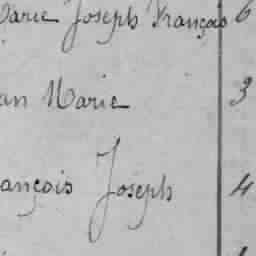 Marie Joseph François 6
an Marie 3
ançois Joseph 4